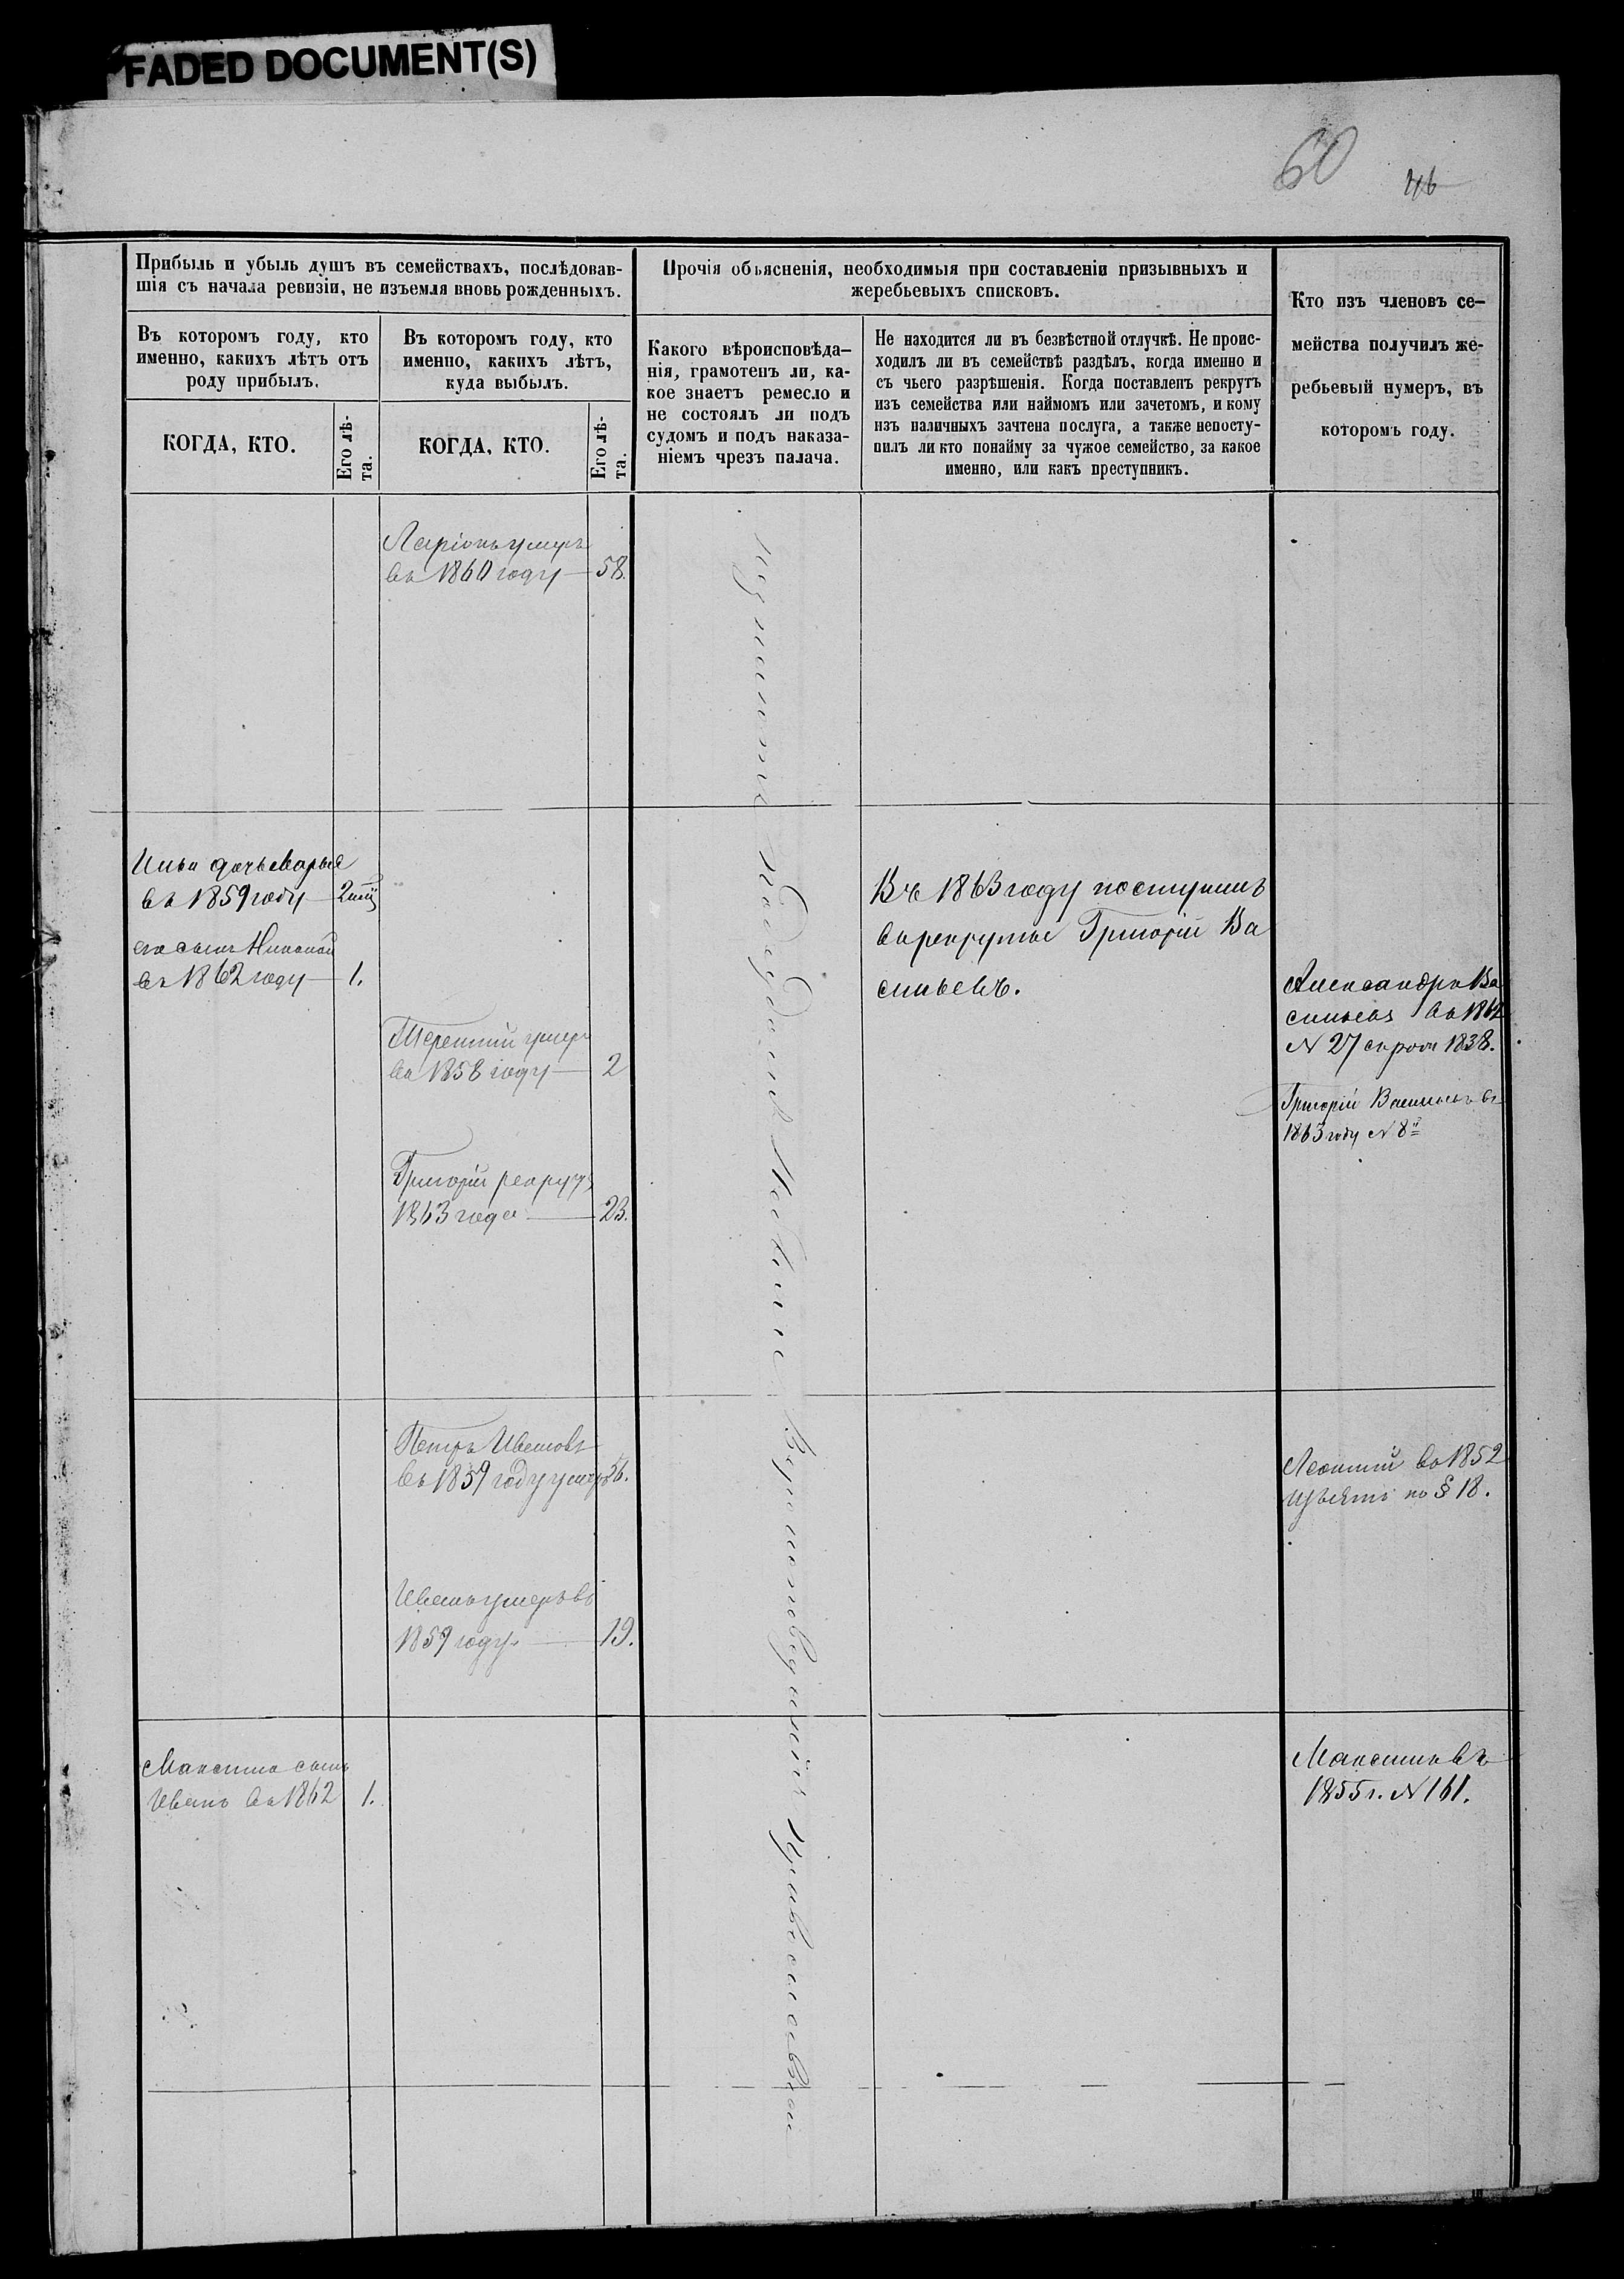 FADED DOCUMENT(S)
60
46
Прибыль и убыль душъ въ семействахъ, послѣдовав-
шія съ начала ревизіи, не изъемля вновь рожденныхъ.
Въ которомъ году, кто
именно, какихъ лѣтъ отъ
роду прибылъ.
КОГДА, КТО.
Его лѣ-
та.
Въ которомъ году, кто
именно, какихъ лѣтъ,
куда выбылъ.
КОГДА, КТО.
Его лѣ-
та.
Прочія объясненія, необходимыя при составленіи призывныхъ и
жеребьевыхъ списковъ.
Какого вѣроисповѣда-
нія, грамотенъ ли, ка-
кое знаетъ ремесло и
не состоялъ ли подъ
судомъ и подъ наказа-
ніемъ чрезъ палача.
Не находится ли въ безвѣстной отлучкѣ. Не проис-
ходилъ ли въ семействѣ раздѣлъ, когда именно и
съ чьего разрѣшенія. Когда поставленъ рекрутъ
изъ семейства или наймомъ или зачетомъ, и кому
изъ наличныхъ зачтена послуга, а также непосту-
пилъ ли кто понайму за чужое семейство, за какое
именно, или какъ преступникъ.
Кто изъ членовъ се-
мейства получилъ же-
ребьевый нумеръ, въ
которомъ году.
Ларіонъ умеръ
въ 1860 году 58.
въ 1859 году
его сынъ Николай
въ 1862 году 1.
Терентій умеръ
въ 1858 году 2
Григорій рекрутъ
1863 года 23.
Въ 1863 году поступилъ
въ рекруты Григорій Ва
сильевъ.
Александръ Ва
сильевъ въ 1862
N 27 съ роди 1838.
Григорій Васильевъ въ
1863 году N 8й
Петръ Ивановъ
въ 1859 году умеръ 56.
Иванъ умеръ въ
1859 году. 19.
Леонтій въ 1852
изъятъ по § 18.
Максима сынъ
Иванъ въ 1862 1.
Максимъ въ
1855 г. N 161.